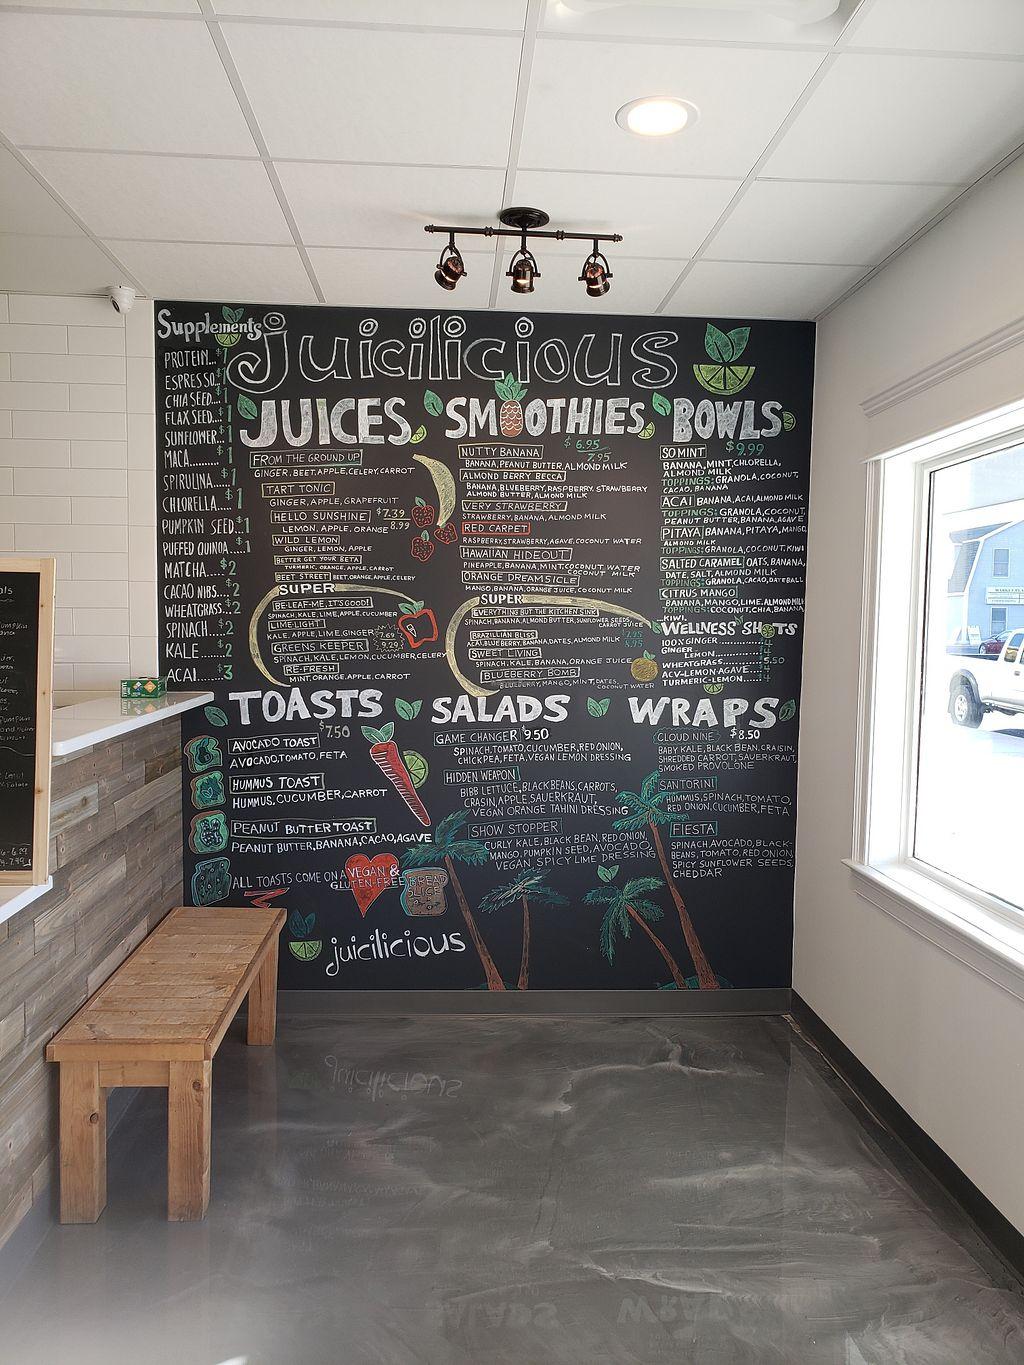 Supplements
PROTEIN...$1
ESPRESSO..$1
CHIA SEED...$1
FLAX SEED..$1
SUNFLOWER..$1
MACA.......$1
SPIRULINA...$1
CHLORELLA..$1
PUMPKIN SEED.$1
PUFFED QUINOA..$1
MATCHA..$2
CACAO NIBS..$2
WHEATGRASS..$2
SPINACH..$2
KALE.....$2
ACAI....$3
juicilicious
JUICES
FROM THE GROUND UP
GINGER, BEET, APPLE, CELERY, CARROT
TART TONIC
GINGER, APPLE, GRAPEFRUIT
HELLO SUNSHINE $7.39
LEMON, APPLE, ORANGE 8.99
WILD LEMON
GINGER, LEMON, APPLE
BETTER GET YOUR BETA
TURMERIC, ORANGE, APPLE, CARROT
BEET STREET BEET, ORANGE, APPLE, CELERY
SUPER
BE-LEAF-ME, IT'S GOOD!
SPINACH, KALE, LIME, APPLE, CUCUMBER
LIME-LIGHT
KALE, APPLE, LIME, GINGER 7.69
GREENS KEEPER 9.29
SPINACH, KALE, LEMON, CUCUMBER, CELERY
RE-FRESH
MINT, ORANGE, APPLE, CARROT
SMOOTHIES
$6.95
NUTTY BANANA 7.95
BANANA, PEANUT BUTTER, ALMOND MILK
ALMOND BERRY BECCA
BANANA, BLUEBERRY, RASPBERRY, STRAWBERRY
ALMOND BUTTER, ALMOND MILK
VERY STRAWBERRY
STRAWBERRY, BANANA, ALMOND MILK
RED CARPET
RASPBERRY, STRAWBERRY, AGAVE, COCONUT WATER
HAWAIIAN HIDEOUT
PINEAPPLE, BANANA, MINT, COCONUT WATER
COCONUT MILK
ORANGE DREAMSICLE
MANGO, BANANA, ORANGE JUICE, COCONUT MILK
SUPER
EVERYTHING BUT THE KITCHEN SINK
SPINACH, BANANA, ALMOND BUTTER, SUNFLOWER SEEDS
CARROT JUICE
BRAZILIAN BLISS
ACAI, BLUEBERRY, BANANA, DATES, ALMOND MILK
SWEET LIVING
SPINACH, KALE, BANANA, ORANGE JUICE
BLUEBERRY BOMB
BLUEBERRY, MANGO, MINT, DATES,
COCONUT WATER
BOWLS
SO MINT $9.99
BANANA, MINT, CHLORELLA,
ALMOND MILK
TOPPINGS: GRANOLA, COCONUT,
CACAO, BANANA
ACAI BANANA, ACAI, ALMOND MILK
TOPPINGS: GRANOLA, COCONUT,
PEANUT BUTTER, BANANA, AGAVE
PITAYA BANANA, PITAYA, MANGO,
ALMOND MILK
TOPPINGS: GRANOLA, COCONUT, KIWI
SALTED CARAMEL OATS, BANANA,
DATE, SALT, ALMOND MILK
TOPPINGS: GRANOLA, CACAO, DATEBALL
CITRUS MANGO
BANANA, MANGO, LIME, ALMOND MILK
TOPPINGS: COCONUT, CHIA, BANANA,
KIWI.
WELLNESS SHOTS
100% GINGER
GINGER
LEMON
WHEATGRASS 5.50
ACV-LEMON AGAVE
TURMERIC-LEMON
TOASTS
$7.50
AVOCADO TOAST
AVOCADO, TOMATO, FETA
HUMMUS TOAST
HUMMUS, CUCUMBER, CARROT
PEANUT BUTTER TOAST
PEANUT BUTTER, BANANA, CACAO, AGAVE
ALL TOASTS COME ON A VEGAN &
GLUTEN-FREE BREAD
SLICE
juicilicious
SALADS
GAME CHANGER $9.50
SPINACH, TOMATO, CUCUMBER, RED ONION,
CHICKPEA, FETA, VEGAN LEMON DRESSING
HIDDEN WEAPON
BIBB LETTUCE, BLACK BEANS, CARROTS,
CRASIN, APPLE, SAUERKRAUT,
VEGAN ORANGE TAHINI DRESSING
SHOW STOPPER
CURLY KALE, BLACK BEAN, RED ONION,
MANGO, PUMPKIN SEED, AVOCADO,
VEGAN SPICY LIME DRESSING
WRAPS
CLOUD NINE $8.50
BABY KALE, BLACK BEAN, CRAISIN,
SHREDDED CARROT, SAUERKRAUT,
SMOKED PROVOLONE
SANTORINI
HUMMUS, SPINACH, TOMATO,
RED ONION, CUCUMBER, FETA
FIESTA
SPINACH, AVOCADO, BLACK-
BEANS, TOMATO, RED ONION,
SPICY SUNFLOWER SEEDS
CHEDDAR